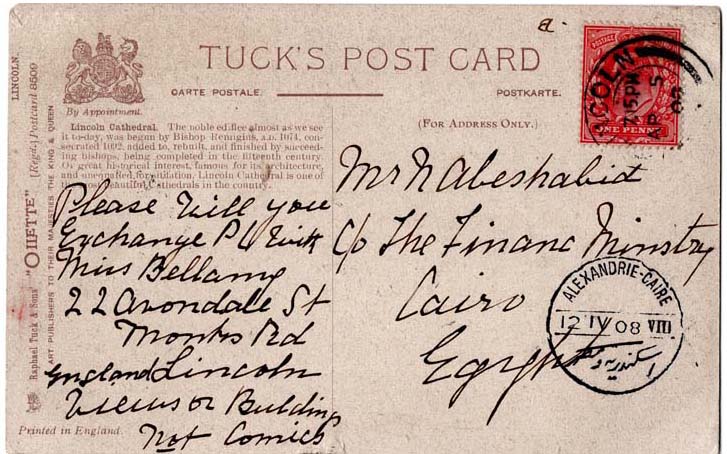 LINCOLN.
Raphael Tuck & Sons' "OILETTE" [Regd.] Postcard 8509
ART PUBLISHERS TO THEIR MAJESTIES THE KING & QUEEN
By Appointment.
TUCK'S POST CARD
CARTE POSTALE.
POSTKARTE.
(FOR ADDRESS ONLY.)
a.
Lincoln Cathedral. The noble edifice almost as we see
it to-day, was began by Bishop Remigius, A.D. 1074, con-
secrated 1092, added to, rebuilt, and finished by succeed-
ing bishops, being completed in the fifteenth century.
Of great historical interest, famous for its architecture,
and unequalled for situation, Lincoln Cathedral is one of
the most beautiful cathedrals in the country.
Please will you
Exchange P C with
Miss Bellamy
22 Avondale St
Monks Rd
Lincoln
England
Views or Building
not Comics
Printed in England.
POSTAGE
ONE PENNY
LINCOLN
7.15 PM
AP 5
08
Mr N Abeshabid
C/o The Financ Minstry
Cairo
Egypt
ALEXANDRIE-CAIRE
12 IV 08 VIII